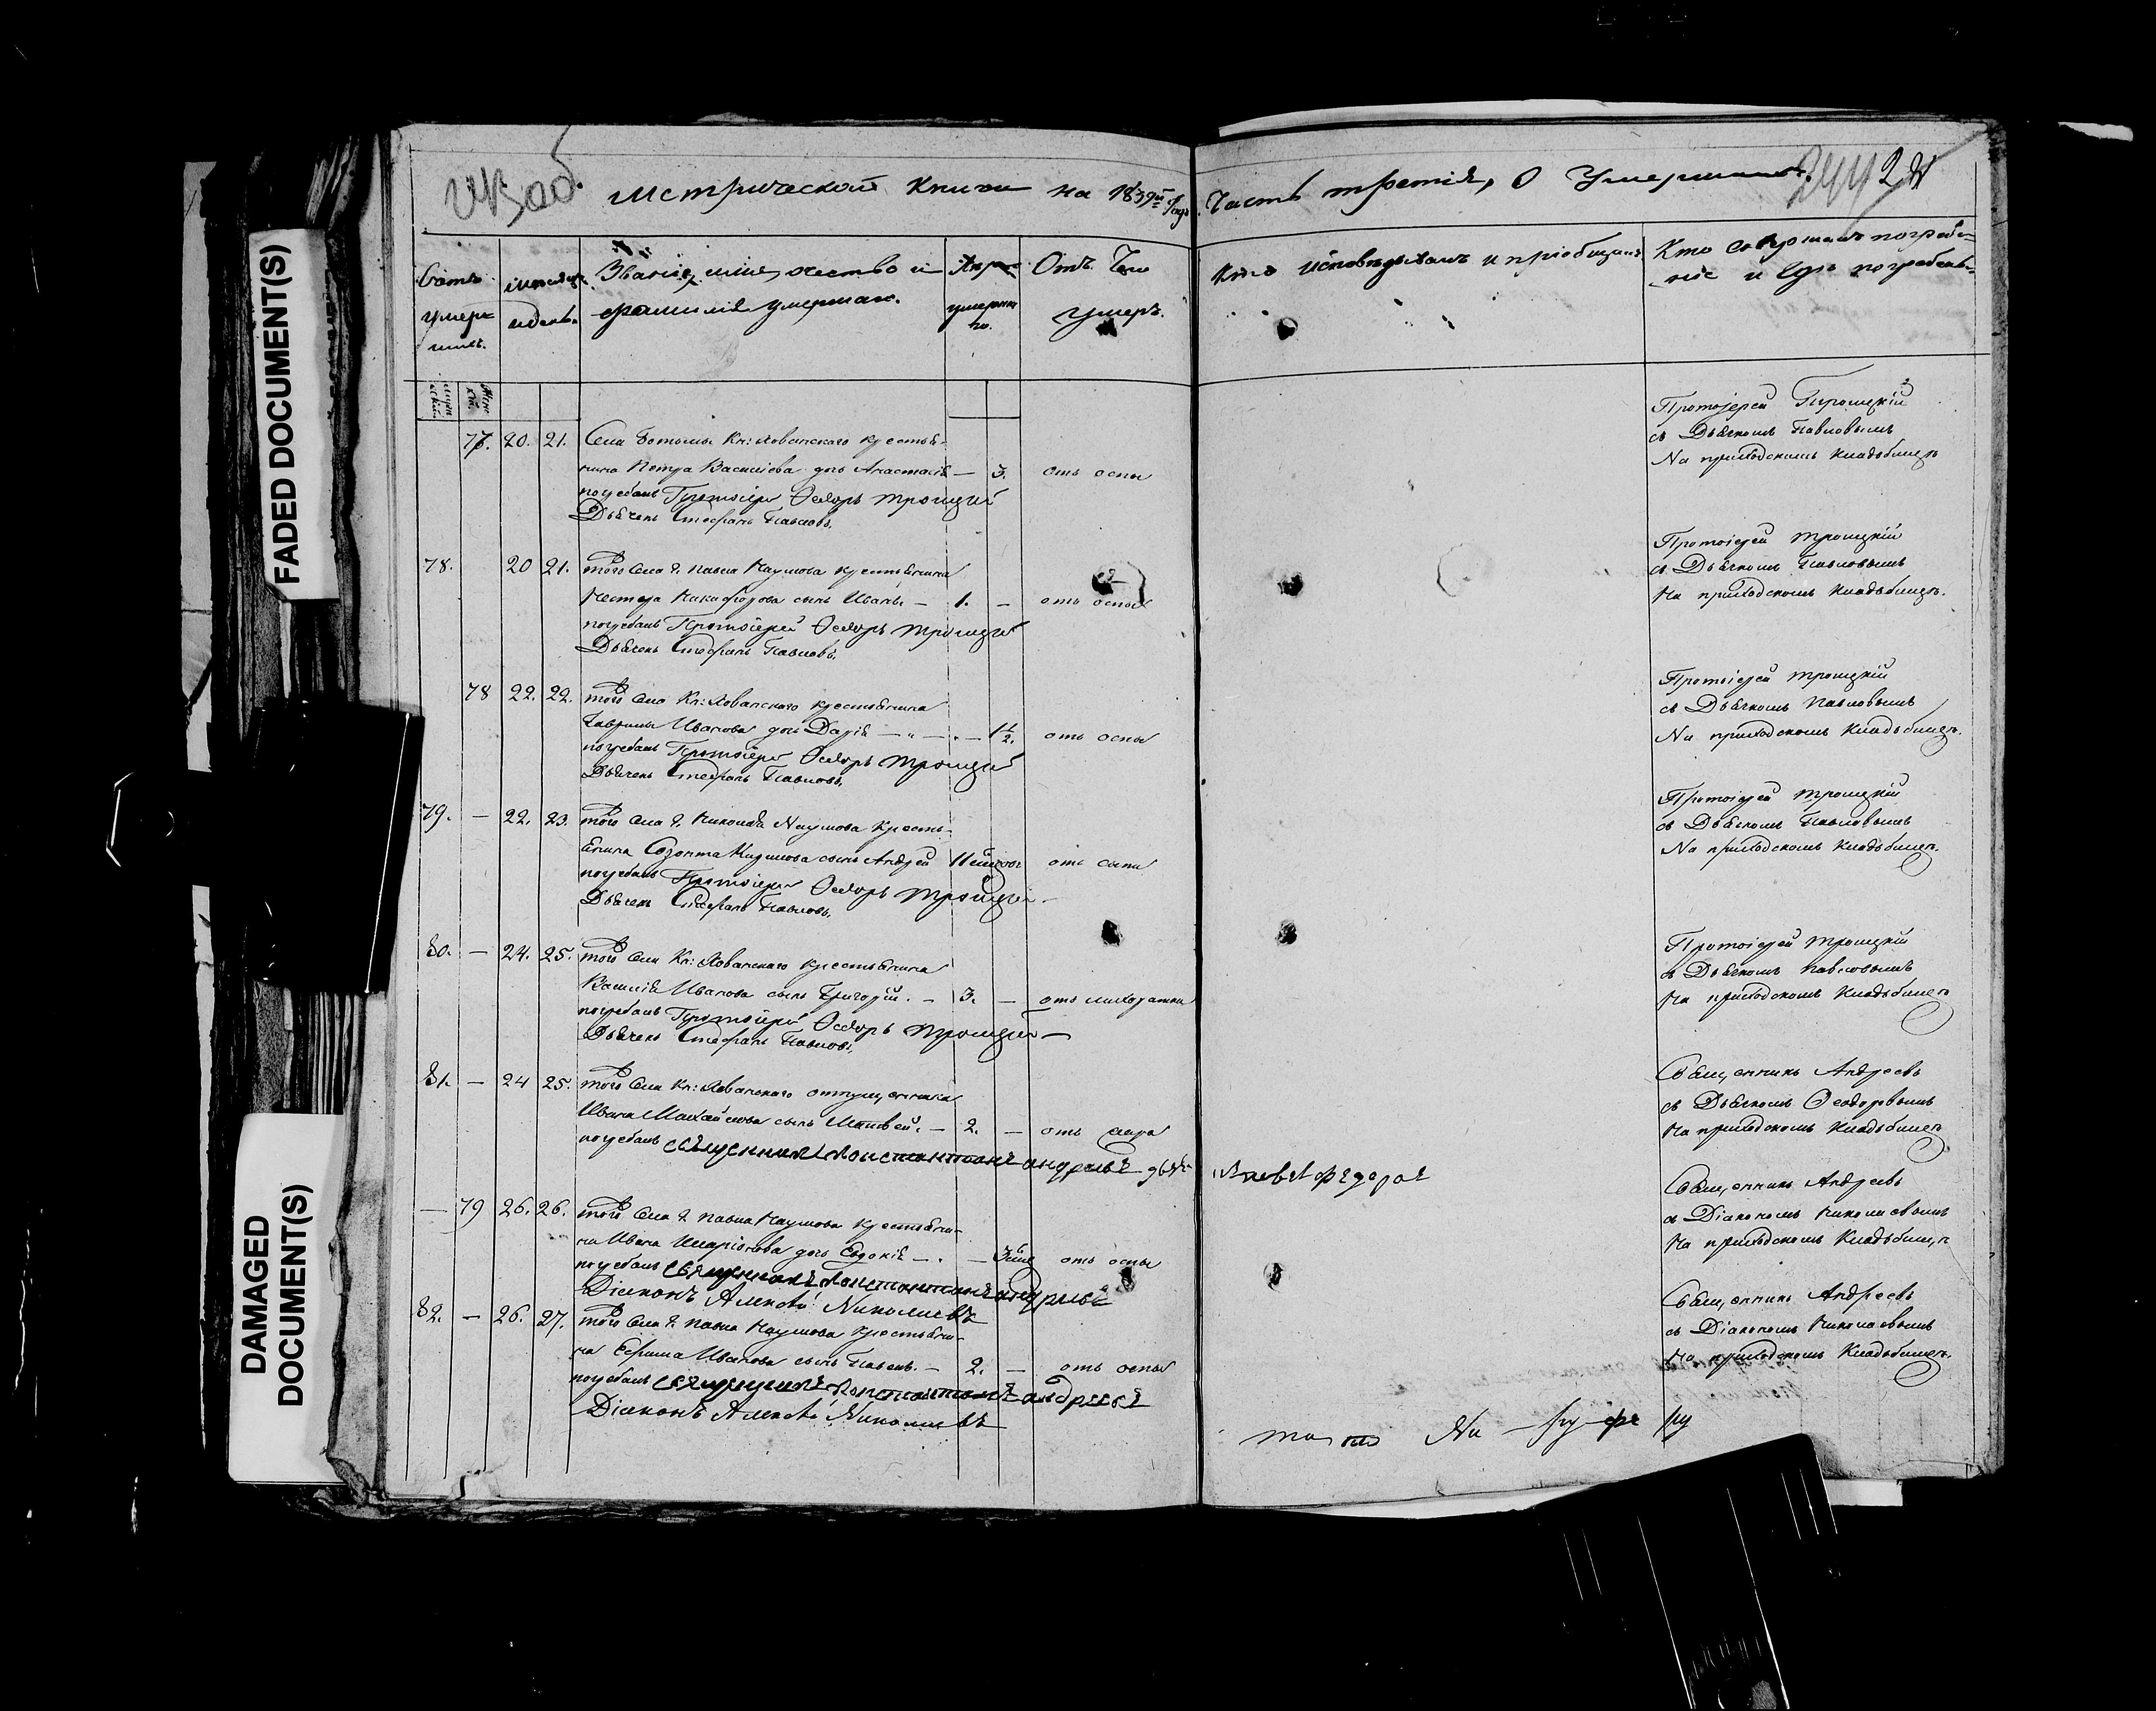 FADED DOCUMENT(S)
DAMAGED
DOCUMENT(S)
Метрической Книги на 1839й годъ
Часть третія, О Умершихъ.
Звание, имя, отчество и
фамилія умершаго.
умершаго.
Отъ Чего
умеръ.
Кто исповѣдывалъ и пріобщалъ
Кто совершалъ погребе-
ніе и гдѣ погребены
77. 20. 21. Села Кн: Хованского крестья-
нина Петра Василіева дочь Анастасія — 3. отъ оспы
погребалъ Протоіерей Ѳеодоръ Троицкій
Дьячекъ Стефанъ Павловъ.
Протоіерей Троицкій
съ Дьячкомъ Павловымъ
На приходскомъ кладбищѣ
78. 20 21. того села г. Павла Наумова крестьянина
Нестера Никифорова сынъ Иванъ — 1. — отъ оспы
погребалъ Протоіерей Ѳеодоръ Троицкій
Дьячекъ Стефанъ Павловъ.
Протоіерей Троицкій
съ Дьячкомъ Павловымъ
На приходскомъ кладбищѣ.
78 22. 22. того села Кн: Хованского крестьянина
Гаврилы Иванова дочь Дарія — 1½. отъ оспы
погребалъ Протоіерей Ѳеодоръ Троицкій
Дьячекъ Стефанъ Павловъ.
Протоіерей Троицкій
съ Дьячкомъ Павловымъ
На приходскомъ кладбищѣ.
79. — 22. 23. того села г. Николая Наумова кресть-
янина Созонта сынъ Андрей отъ
погребалъ Протоіерей Ѳеодоръ Троицкій
Дьячекъ Стефанъ Павловъ.
Протоіерей Троицкій
съ Дьячкомъ Павловымъ
На приходскомъ кладбищѣ.
80. — 24. 25. того села Кн: Хованского крестьянина
Василія Иванова сынъ Григорій. — 3. — отъ лихорадки
погребалъ Протоіерей Ѳеодоръ Троицкій
Дьячекъ Стефанъ Павловъ.
Протоіерей Троицкій
съ Дьячкомъ Павловымъ
На приходскомъ кладбищѣ
81. — 24 25. того села Кн: Хованского отпущенника
Ивана Михайлова сынъ Матвей. — 2. — отъ
погребалъ священникъ Константинъ Андреевъ
Федоровъ
Священникъ Андреевъ
съ Дьячкомъ Ѳеодоровымъ
На приходскомъ кладбищѣ
— 79 26. 26. того села г. Павла Наумова крестьяни-
на Ивана Иларіонова дочь Евдокія — отъ оспы
погребалъ священникъ Константинъ Андреевъ
Діаконъ Алексѣй Николаевъ
Священникъ Андреевъ
съ Діакономъ Николаевымъ
На приходскомъ кладбищѣ
82. — 26. 27. того села г. Павла Наумова крестьяни-
на Ефима Иванова сынъ Павелъ. — 2. — отъ оспы
погребалъ священникъ Константинъ Андреевъ
Діаконъ Алексѣй Николаевъ
Священникъ Андреевъ
съ Діакономъ Николаевымъ
На приходскомъ кладбищѣ.